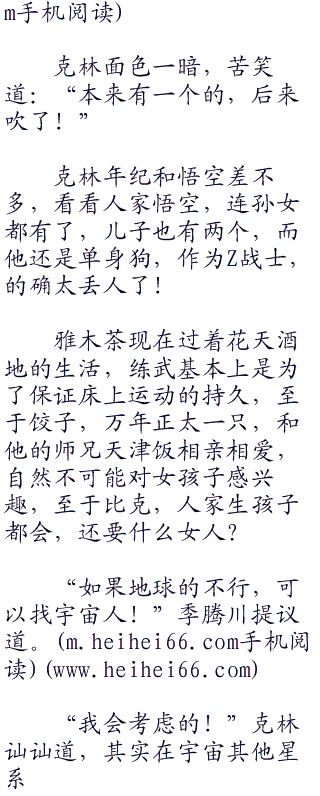 m手机阅读)
克林面色一暗，苦笑
道：“本来有一个的，后来
吹了！”
克林年纪和悟空差不
多，看看人家悟空，连孙女
都有了，儿子也有两个，而
他还是单身狗，作为Z战士，
的确太丢人了！
雅木茶现在过着花天酒
地的生活，练武基本上是为
了保证床上运动的持久，至
于饺子，万年正太一只，和
他的师兄天津饭相亲相爱，
自然不可能对女孩子感兴
趣，至于比克，人家生孩子
都会，还要什么女人？
“如果地球的不行，可
以找宇宙人！”季腾川提议
道。(m.heihei66.com手机阅
读)(www.heihei66.com)
“我会考虑的！”克林
讪讪道，其实在宇宙其他星
系